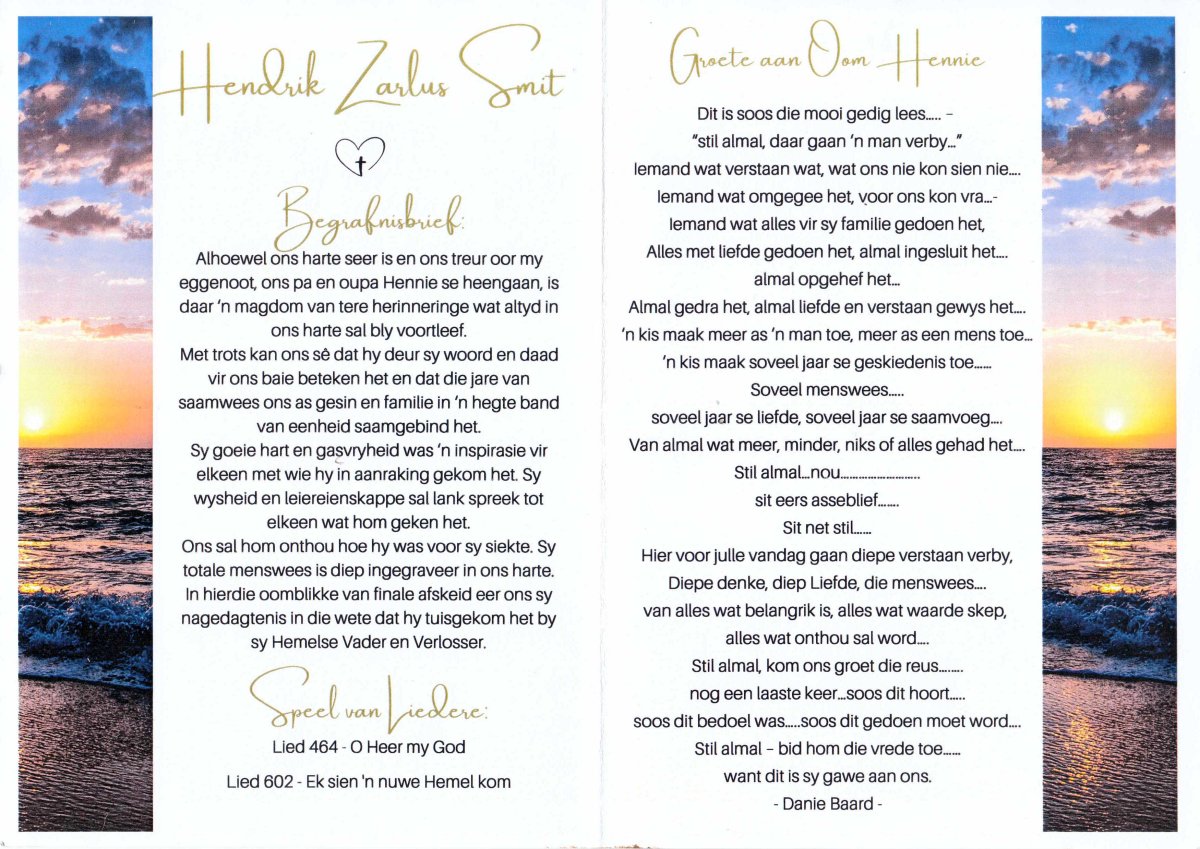 Hendrik Zarlus Smit
Begrafnisbrief:
Alhoewel ons harte seer is en ons treur oor my
eggenoot, ons pa en oupa Hennie se heengaan, is
daar 'n magdom van tere herinneringe wat altyd in
ons harte sal bly voortleef.
Met trots kan ons sê dat hy deur sy woord en daad
vir ons baie beteken het en dat die jare van
saamwees ons as gesin en familie in 'n hegte band
van eenheid saamgebind het.
Sy goeie hart en gasvryheid was 'n inspirasie vir
elkeen met wie hy in aanraking gekom het. Sy
wysheid en leiereienskappe sal lank spreek tot
elkeen wat hom geken het.
Ons sal hom onthou hoe hy was voor sy siekte. Sy
totale menswees is diep ingegraveer in ons harte.
In hierdie oomblikke van finale afskeid eer ons sy
nagedagtenis in die wete dat hy tuisgekom het by
sy Hemelse Vader en Verlosser.
Speel van Liedere:
Lied 464 - O Heer my God
Lied 602 - Ek sien 'n nuwe Hemel kom
Groete aan Oom Hennie
Dit is soos die mooi gedig lees..... –
"stil almal, daar gaan 'n man verby..."
Iemand wat verstaan wat, wat ons nie kon sien nie....
Iemand wat omgegee het, voor ons kon vra...-
Iemand wat alles vir sy familie gedoen het,
Alles met liefde gedoen het, almal ingesluit het....
almal opgehef het...
Almal gedra het, almal liefde en verstaan gewys het....
'n kis maak meer as 'n man toe, meer as een mens toe...
'n kis maak soveel jaar se geskiedenis toe......
Soveel menswees.....
soveel jaar se liefde, soveel jaar se saamvoeg....
Van almal wat meer, minder, niks of alles gehad het....
Stil almal...nou..........................
sit eers asseblief.......
Sit net stil......
Hier voor julle vandag gaan diepe verstaan verby,
Diepe denke, diep Liefde, die menswees....
van alles wat belangrik is, alles wat waarde skep,
alles wat onthou sal word....
Stil almal, kom ons groet die reus........
nog een laaste keer...soos dit hoort.....
soos dit bedoel was.....soos dit gedoen moet word....
Stil almal – bid hom die vrede toe......
want dit is sy gawe aan ons.
- Danie Baard -